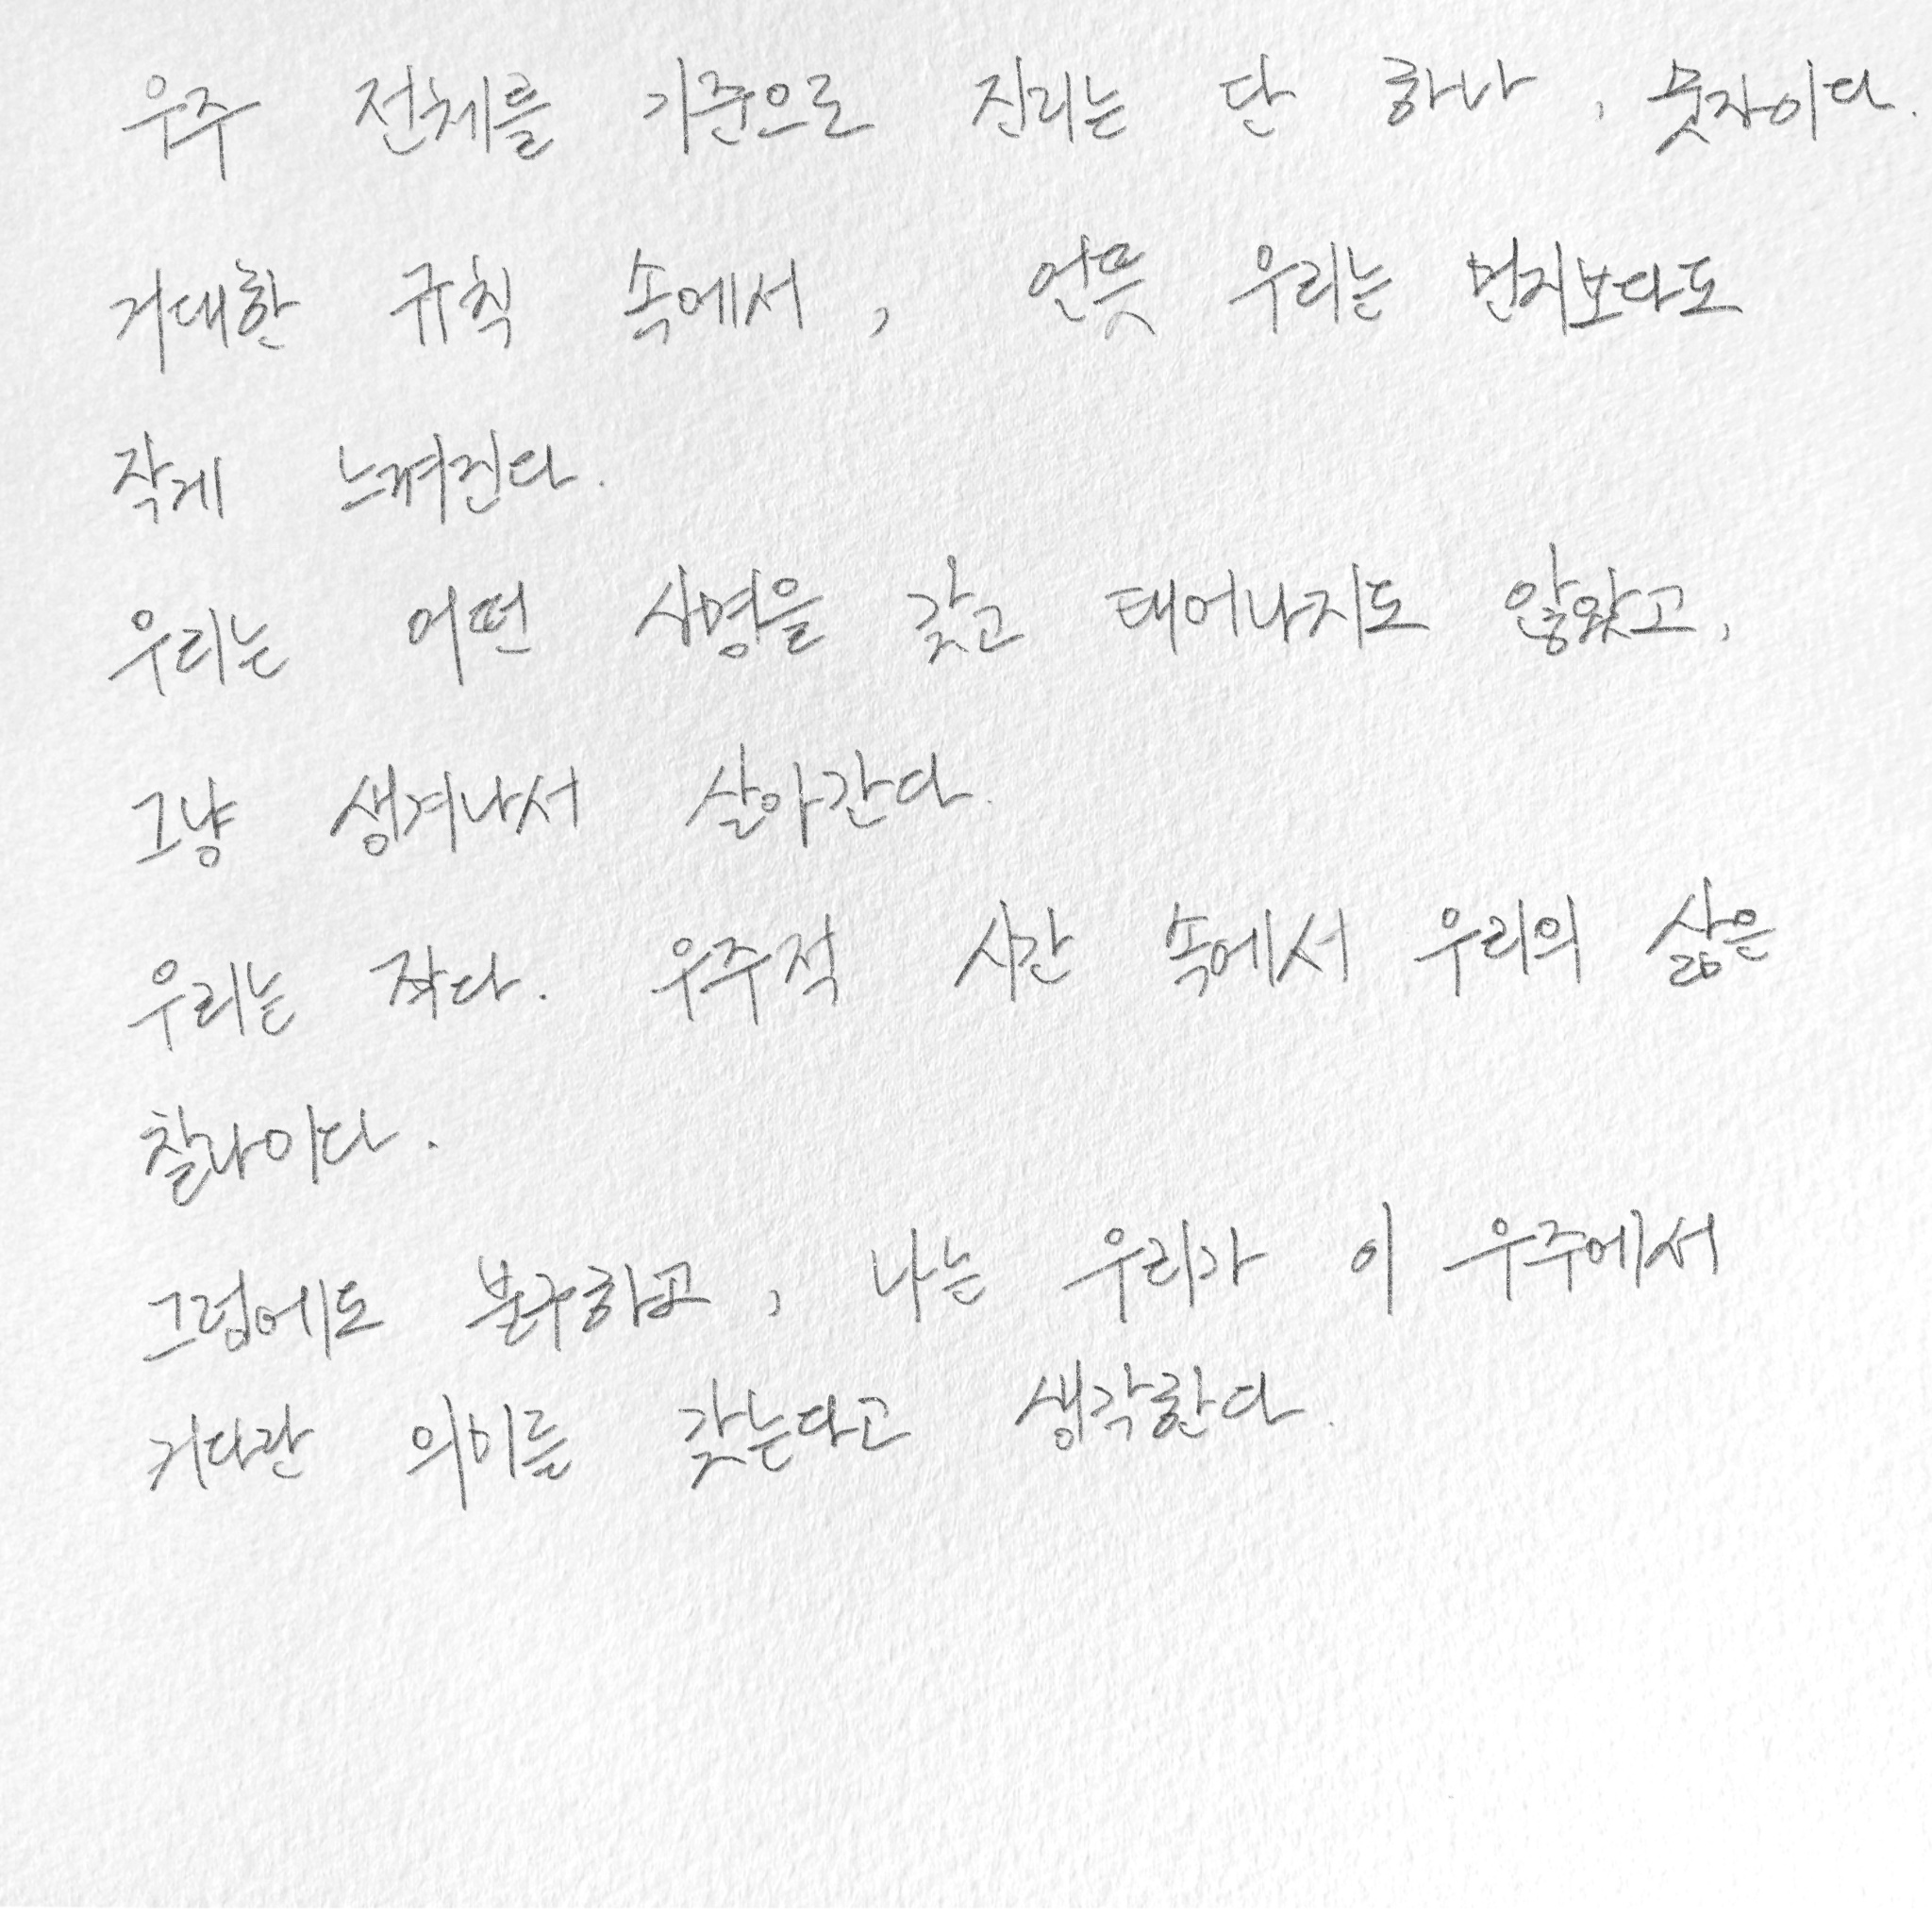 우주 전체를 기준으로 진리는 단 하나, 숫자이다.
거대한 규칙 속에서, 언뜻 우리는 먼지보다도
작게 느껴진다.
우리는 어떤 사명을 갖고 태어나지도 않았고,
그냥 생겨나서 살아간다.
우리는 작다. 우주적 시간 속에서 우리의 삶은
찰나이다.
그럼에도 불구하고, 나는 우리가 이 우주에서
커다란 의미를 갖는다고 생각한다.